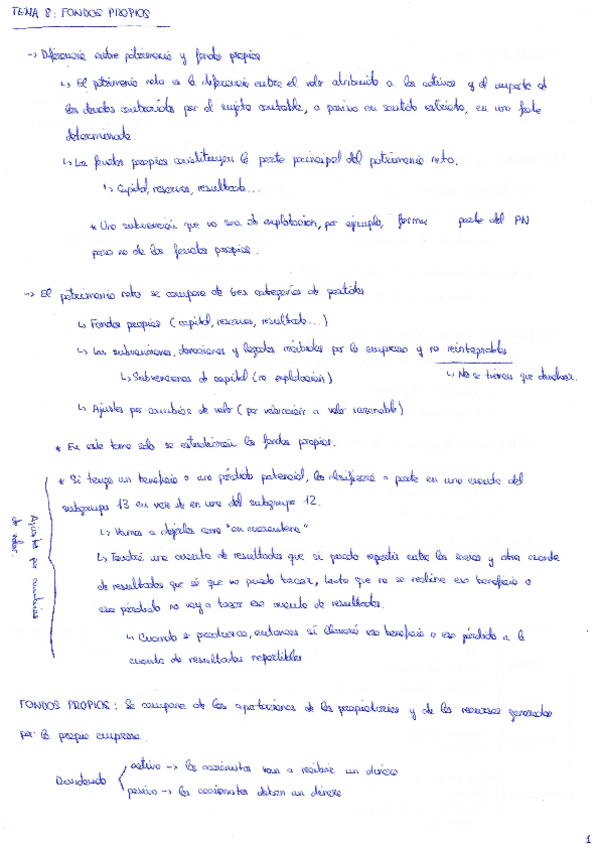 TEMA 8: FONDOS PROPIOS
-> Diferencia entre patrimonio y fondos propios
↳ El patrimonio neto es la diferencia entre el valor atribuido a los activos y el importe de
las deudas contraídas por el sujeto contable, o pasivo en sentido estricto, en una fecha
determinada.
↳ Los fondos propios constituyen la parte principal del patrimonio neto.
↳ Capital, reservas, resultado...
* Una subvención que no sea de explotación, por ejemplo, forma parte del PN
pero no de los fondos propios.
-> El patrimonio neto se compone de tres categorías de partidas
↳ Fondos propios (capital, reservas, resultado...)
↳ Las subvenciones, donaciones y legados recibidos por la empresa y no reintegrables
↳ Subvenciones de capital (no explotación)
↳ No se tienen que devolver.
↳ Ajustes por cambios de valor (por valoración a valor razonable)
* En este tema solo se estudiarán los fondos propios.
Ajustes por cambios
de valor.
* Si tengo un beneficio o una pérdida potencial, los clasificaré a parte en una cuenta del
subgrupo 13 en vez de en una del subgrupo 12.
↳ Vamos a dejarlos como "en cuarentena"
↳ Tendré una cuenta de resultados que si puedo repartir entre los socios y otra cuenta
de resultados que sé que no puedo tocar, hasta que no se realice ese beneficio o
esa pérdida no voy a tocar esa cuenta de resultados.
↳ Cuando se produzca, entonces sí llevaré ese beneficio o esa pérdida a la
cuenta de resultados repartibles
FONDOS PROPIOS: Se compone de las aportaciones de los propietarios y de los recursos generados
por la propia empresa.
Dividendo
activo -> los accionistas van a recibir un dinero
pasivo -> los accionistas deben un dinero
1